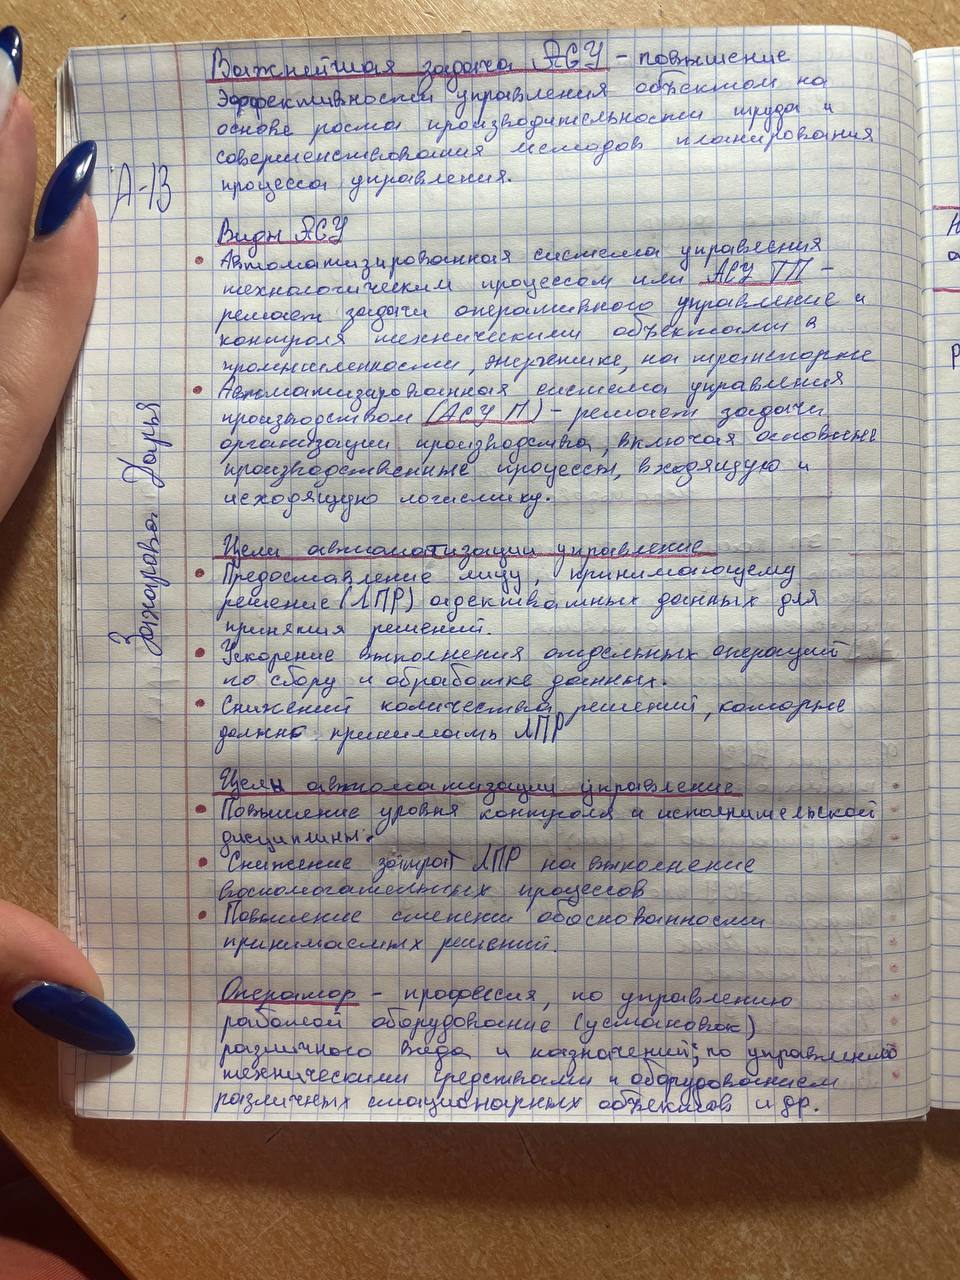 Важнейшая задача АСУ - повышение
эффективности управления объектом на
основе роста производительности труда и
совершенствования методов планирования
процесса управления.
А-13
Виды АСУ
• Автоматизированная система управления
технологическим процессом или АСУ ТП -
решает задачи оперативного управление и
контроля техническими объектами в
промышленности, энергетике, на транспорте
• Автматизированная система управления
производством (АСУ П) - решает задачи
организации производства, включая основные
производственные процессы, входящую и
исходящую логистику.
Захарова Дарья
Цели автоматизации управление
• Предоставление лицу, принимающему
решение (ЛПР) адекватных данных для
принятия решений.
• Ускорение выполнения отдельных операций
по сбору и обработке данных.
• Снижений количества решений, которые
должно принимать ЛПР
Цели автоматизации управление
• Повышение уровня контроля и исполнительской
дисциплины.
• Снижение затрат ЛПР на выполнение
вспомогательных процессов
• Повышение степени обоснованности
принимаемых решений.
Оператор - профессия, по управлению
работой оборудование (установок)
различного вида и назначений; по управлению
техническими средствами и оборудованием
различных стационарных объектов и др.
Н
а
р